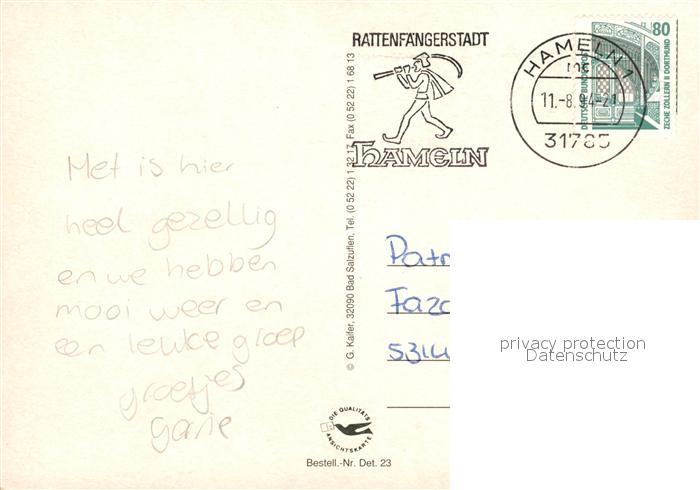 RATTENFÄNGERSTADT
HAMELN
HAMELN 1
mc
11.-8.94-21
31785
80
DEUTSCHE BUNDESPOST
ZECHE ZOLLERN II DORTMUND
Met is hier
heel gezellig
en we hebben
mooi weer en
een leuke groep
groetjes
© G. Kaifer, 32090 Bad Salzuflen, Tel. (0 52 22) 1 22 17, Fax (0 52 22) 1 68 13
Patr
Faza
privacy protection
Datenschutz
DIE QUALITÄTS
ANSICHTSKARTE
Bestell.-Nr. Det. 23